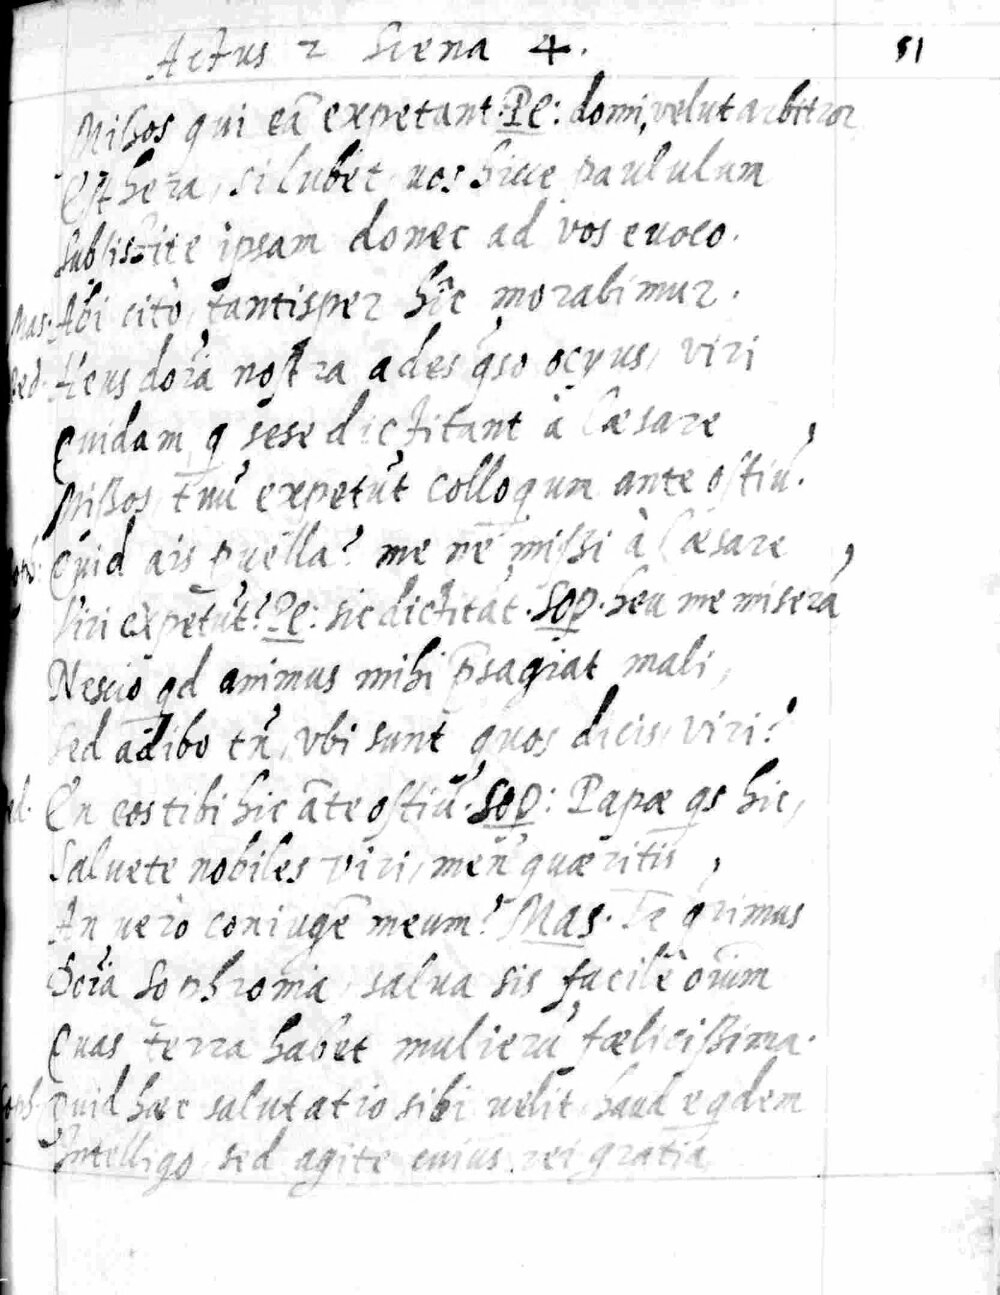 Actus 2 Scena 4. 51
Mißos qui eā expetant. Pe: domi, velut arbitror
Est hera, si lubet, uos hicce paululum
Subsistite ipsam donec ad vos euoco.
Mas. Abi citò, tantisper hîc morabimur.
Ped. Heus dom̄a nostra ades q̄so ocyus, viri
Quidam, q sese dictitant à Cæsare
Mißos, tuū expetūt colloquium ante ostiū.
Soph. Quid ais puella? me ne mißi à Cæsare
Viri expetūt? Pe: sic dictitāt. Sop. heu me miserā
Nescio qd animus mihi p̄sagiat mali,
Sed adibo tn̄, vbi sunt quos dicis, viri?
Ped. En eos tibi hic āte ostiū. Sop: Papæ qs hic,
Saluete nobiles viri, men' quæritis,
An uerò coniugē meum? Mas. Te qrimus
Dom̄a Sophronia, salua sis facilè om̄ium
Quas terra habet mulierū fœlicißima.
Soph. Quid hæc salutatio sibi uelit, haud eqdem
Intelligo, sed agite cuius rei gratia